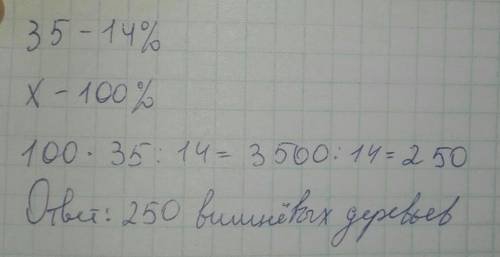 35 - 14%
х - 100%
100 · 35 : 14 = 3500 : 14 = 250
Ответ: 250 вишнёвых деревьев